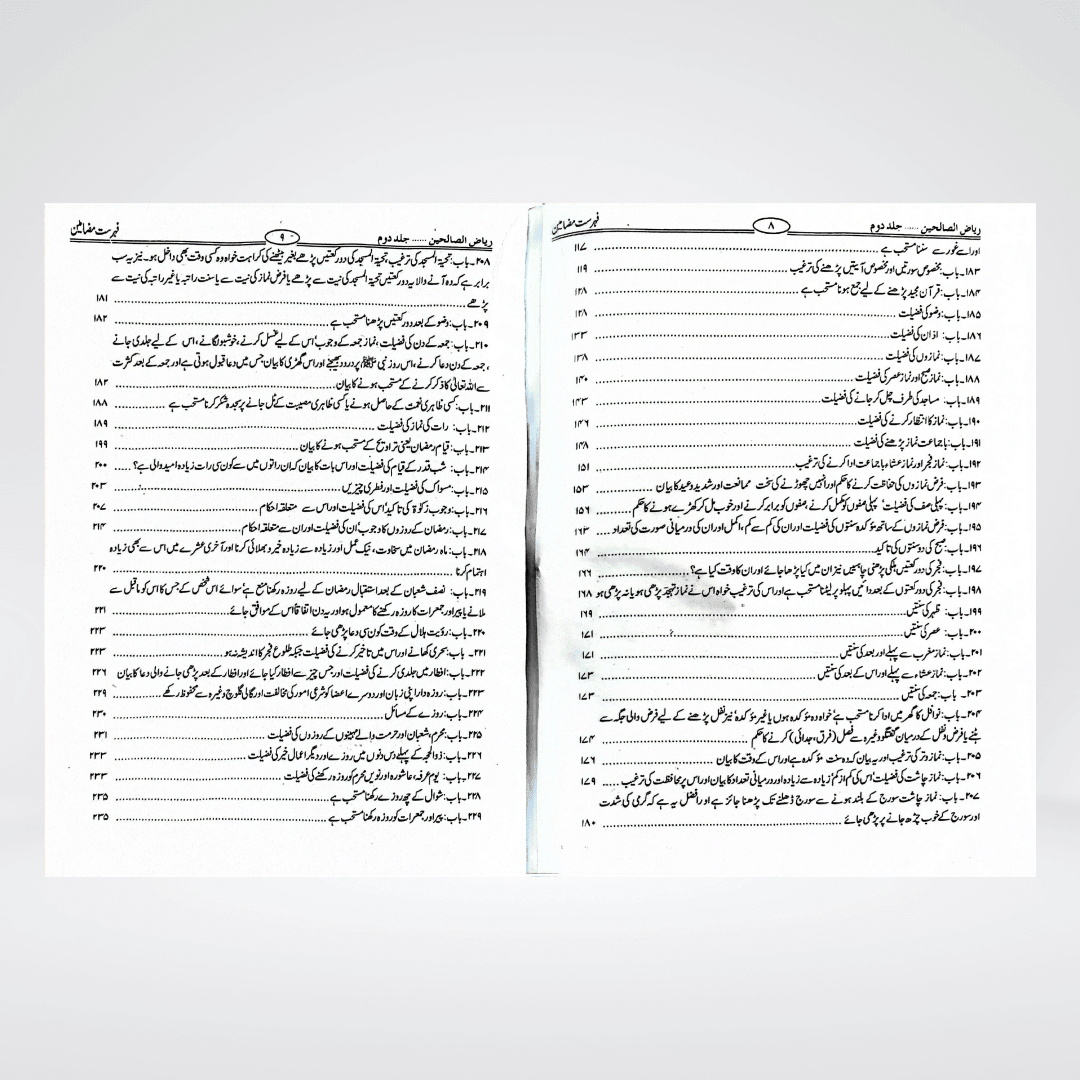 ریاض الصالحین ...... جلد دوم ۸ فہرست مضامین
اور اسے غور سے سننا مستحب ہے ۱۱۷
۱۸۳۔باب: مخصوص سورتیں اور مخصوص آیتیں پڑھنے کی ترغیب ۱۱۹
۱۸۴۔باب: قرآن مجید پڑھنے کے لیے جمع ہونا مستحب ہے ۱۲۸
۱۸۵۔باب: وضو کی فضیلت ۱۲۸
۱۸۶۔باب: اذان کی فضیلت ۱۳۳
۱۸۷۔باب: نمازوں کی فضیلت ۱۳۸
۱۸۸۔باب: نماز صبح اور نماز عصر کی فضیلت ۱۴۰
۱۸۹۔باب: مساجد کی طرف چل کر جانے کی فضیلت ۱۴۳
۱۹۰۔باب: نماز کا انتظار کرنے کی فضیلت ۱۴۶
۱۹۱۔باب: باجماعت نماز پڑھنے کی فضیلت ۱۴۸
۱۹۲۔باب: نماز فجر اور نماز عشاء باجماعت ادا کرنے کی ترغیب ۱۵۱
۱۹۳۔باب: فرض نمازوں کی حفاظت کرنے کا حکم اور انہیں چھوڑنے کی سخت ممانعت اور شدید وعید کا بیان ۱۵۳
۱۹۴۔باب: پہلی صف کی فضیلت' پہلی صفوں کو مکمل کرنے' صفوں کو برابر کرنے اور خوب مل کر کھڑے ہونے کا حکم ۱۵۶
۱۹۵۔باب: فرض نمازوں کے ساتھ مؤکدہ سنتوں کی فضیلت اور ان کی کم سے کم، اکمل اور ان کی درمیانی صورت کی تعداد ۱۶۳
۱۹۶۔باب: صبح کی دو سنتوں کی تاکید ۱۶۴
۱۹۷۔باب: فجر کی دو رکعتیں ہلکی پڑھنی چاہییں نیز ان میں کیا پڑھا جائے اور ان کا وقت کیا ہے؟ ۱۶۶
۱۹۸۔باب: فجر کی دو رکعتوں کے بعد دائیں پہلو پر لیٹنا مستحب ہے اور اس کی ترغیب خواہ اس نے نماز تہجد پڑھی ہو یا نہ پڑھی ہو ۱۶۸
۱۹۹۔باب: ظہر کی سنتیں ۱۶۹
۲۰۰۔باب: عصر کی سنتیں ۱۷۱
۲۰۱۔باب: نماز مغرب سے پہلے اور بعد کی سنتیں ۱۷۱
۲۰۲۔باب: نماز عشاء سے پہلے اور اس کے بعد کی سنتیں ۱۷۳
۲۰۳۔باب: جمعہ کی سنتیں ۱۷۳
۲۰۴۔باب: نوافل کا گھر میں ادا کرنا مستحب ہے' خواہ وہ مؤکدہ ہوں یا غیر مؤکدہ' نیز نفل پڑھنے کے لیے فرض والی جگہ سے
ہٹنے یا فرض و نفل کے درمیان گفتگو وغیرہ سے فصل (فرق، جدائی) کرنے کا حکم ۱۷۴
۲۰۵۔باب: نماز وتر کی ترغیب اور یہ بیان کہ وہ سنت مؤکدہ ہے اور اس کے وقت کا بیان ۱۷۶
۲۰۶۔باب: نماز چاشت کی فضیلت' اس کی کم از کم' زیادہ سے زیادہ اور درمیانی تعداد کا بیان اور اس پر محافظت کی ترغیب ۱۷۹
۲۰۷۔باب: نماز چاشت سورج کے بلند ہونے سے سورج ڈھلنے تک پڑھنا جائز ہے اور افضل یہ ہے کہ گرمی کی شدت
اور سورج کے خوب چڑھ جانے پر پڑھی جائے ۱۸۰
ریاض الصالحین ...... جلد دوم ۹ فہرست مضامین
۲۰۸۔باب: تحیۃ المسجد کی ترغیب' تحیۃ المسجد کی دو رکعتیں پڑھے بغیر بیٹھنے کی کراہت خواہ وہ کسی وقت بھی داخل ہو۔ نیز یہ سب
برابر ہے کہ وہ آنے والا یہ دو رکعتیں تحیۃ المسجد کی نیت سے پڑھے یا فرض نماز کی نیت سے یا سنت راتبہ یا غیر راتبہ کی نیت سے
پڑھے ۱۸۱
۲۰۹۔باب: وضو کے بعد دو رکعتیں پڑھنا مستحب ہے ۱۸۲
۲۱۰۔باب: جمعہ کے دن کی فضیلت، نماز جمعہ کے وجوب' اس کے لیے غسل کرنے، خوشبو لگانے، اس کے لیے جلدی جانے
، جمعہ کے دن دعا کرنے، اس روز نبی ﷺ پر درود بھیجنے اور اس گھڑی کا بیان جس میں دعا قبول ہوتی ہے اور جمعہ کے بعد کثرت
سے اللہ تعالیٰ کا ذکر کرنے کے مستحب ہونے کا بیان ۱۸۲
۲۱۱۔باب: کسی ظاہری نعمت کے حاصل ہونے یا کسی ظاہری مصیبت کے ٹل جانے پر سجدہ شکر کرنا مستحب ہے ۱۸۸
۲۱۲۔باب: رات کی نماز کی فضیلت ۱۸۹
۲۱۳۔باب: قیام رمضان یعنی تراویح کے مستحب ہونے کا بیان ۱۹۹
۲۱۴۔باب: شب قدر کے قیام کی فضیلت اور اس بات کا بیان کہ ان راتوں میں سے کون سی رات زیادہ امید والی ہے؟ ۲۰۰
۲۱۵۔باب: مسواک کی فضیلت اور فطری چیزیں ۲۰۳
۲۱۶۔باب: وجوب زکوٰۃ کی تاکید' اس کی فضیلت اور اس سے متعلقہ احکام ۲۰۷
۲۱۷۔باب: رمضان کے روزوں کا وجوب' ان کی فضیلت اور ان سے متعلقہ احکام ۲۱۴
۲۱۸۔باب: ماہ رمضان میں سخاوت، نیک عمل اور زیادہ سے زیادہ خیر و بھلائی کرنا اور آخری عشرے میں اس سے بھی زیادہ
اہتمام کرنا ۲۲۰
۲۱۹۔باب: نصف شعبان کے بعد استقبال رمضان کے لیے روزہ رکھنا منع ہے' سوائے اس شخص کے جس کا اس کو ماقبل سے
ملانے یا پیر اور جمعرات کا روزہ رکھنے کا معمول ہو اور یہ دن اتفاقاً اس کے موافق آ جائے ۲۲۱
۲۲۰۔باب: رؤیت ہلال کے وقت کون سی دعا پڑھی جائے ۲۲۳
۲۲۱۔باب: سحری کھانے اور اس میں تاخیر کرنے کی فضیلت جبکہ طلوع فجر کا اندیشہ نہ ہو ۲۲۳
۲۲۲۔باب: افطار میں جلدی کرنے کی فضیلت اور جس چیز سے افطار کیا جائے اور افطار کے بعد پڑھی جانے والی دعا کا بیان ۲۲۶
۲۲۳۔باب: روزہ دار اپنی زبان اور دوسرے اعضا کو شرعی امور کی مخالفت اور گالی گلوچ وغیرہ سے محفوظ رکھے ۲۲۹
۲۲۴۔باب: روزے کے مسائل ۲۳۰
۲۲۵۔باب: محرم، شعبان اور حرمت والے مہینوں کے روزوں کی فضیلت ۲۳۱
۲۲۶۔باب: ذوالحجہ کے پہلے دس دنوں میں روزے اور دیگر اعمال خیر کی فضیلت ۲۳۳
۲۲۷۔باب: یوم عرفہ، عاشورہ اور نویں محرم کو روزہ رکھنے کی فضیلت ۲۳۳
۲۲۸۔باب: شوال کے چھ روزے رکھنا مستحب ہے ۲۳۵
۲۲۹۔باب: پیر اور جمعرات کو روزہ رکھنا مستحب ہے ۲۳۵